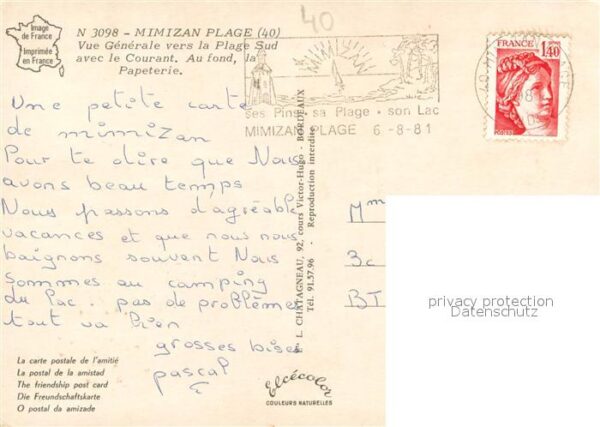 Image
de France
Imprimée
en France
N 3098 - MIMIZAN PLAGE (40)
Vue Générale vers la Plage Sud
avec le Courant. Au fond, la
Papeterie.
40
ses Pins • sa Plage • son Lac
MIMIZAN PLAGE 6-8-81
FRANCE
1,40
POSTES
Une petite carte
de mimizan
Pour te dire que Nous
avons beau temps
Nous passons d'agréable
vacances et que nous nous
baignons souvant Nous
sommes au camping
du Lac. pas de problèmes
tout va bien
grosses bises
pascal
L. CHATAGNEAU, 92, cours Victor-Hugo - BORDEAUX
Tél. 91.57.96 - Reproduction interdite
Mm
3c
BT
privacy protection
Datenschutz
La carte postale de l'amitié
La postal de la amistad
The friendship post card
Die Freundschaftskarte
O postal da amizade
Elcécolor
COULEURS NATURELLES